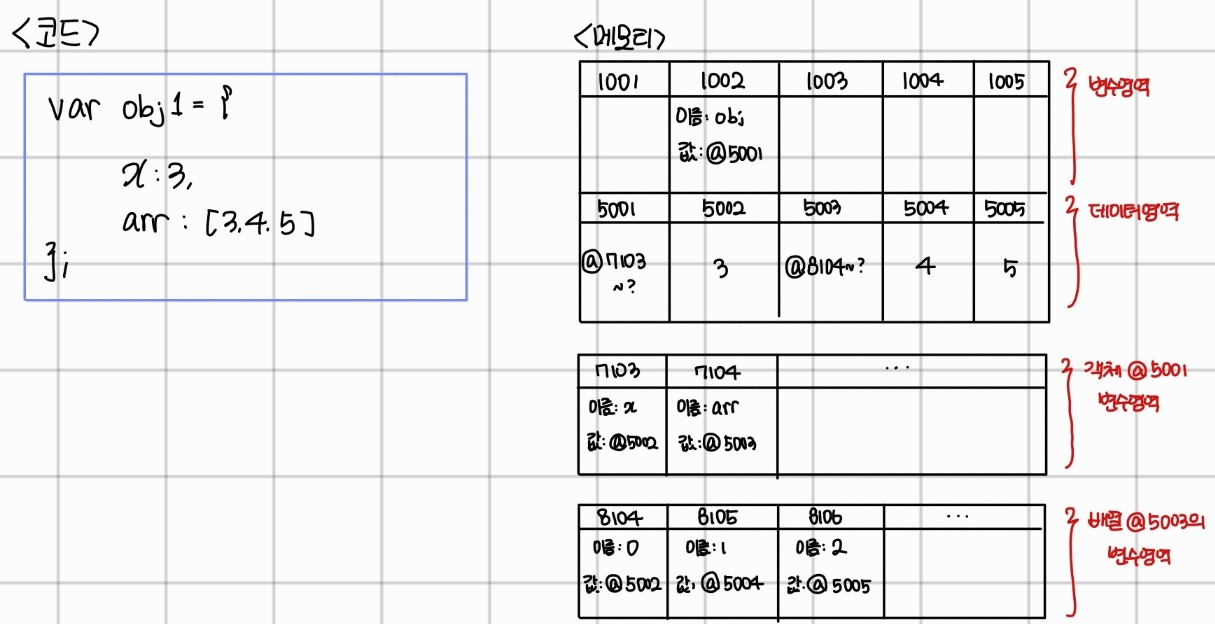 <코드>
var obj1 = {
x : 3,
arr : [3, 4, 5]
};
<메모리>
1001 1002 1003 1004 1005
이름: obj
값: @5001
변수영역
5001 5002 5003 5004 5005
@7103 ~? 3 @8104~? 4 5
데이터영역
7103 7104 ...
이름: x 이름: arr
값: @5002 값: @5003
객체 @5001
변수영역
8104 8105 8106 ...
이름: 0 이름: 1 이름: 2
값: @5002 값: @5004 값: @5005
배열 @5003의
변수영역